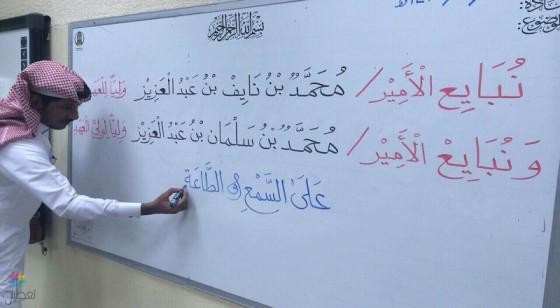 بسم الله الرحمن الرحيم
المادة:
الموضوع:
نُبَايِع الْأَمِيْر/ مُحَمَّدُ بْنُ نَايِفْ بْنُ عَبْدُ الْعَزِيْز وَلِيًّا لِلْعَهْدِ
وَ نُبَايِعْ الْأَمِيْر/ مُحَمَّدُ بْنُ سَلْمَان بْنُ عَبْدُ الْعَزِيْز وَلِيًّا لِوَلِيِّ الْعَهْدِ
عَلَىٰ السَّمْعِ وَ الطَّاعَةِ